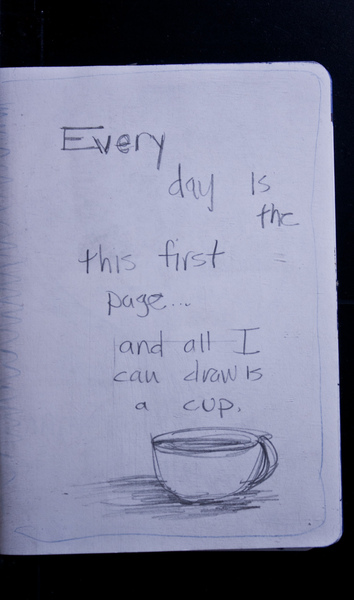 Every
day is
the
this first
page...
and all I
can draw is
a cup.